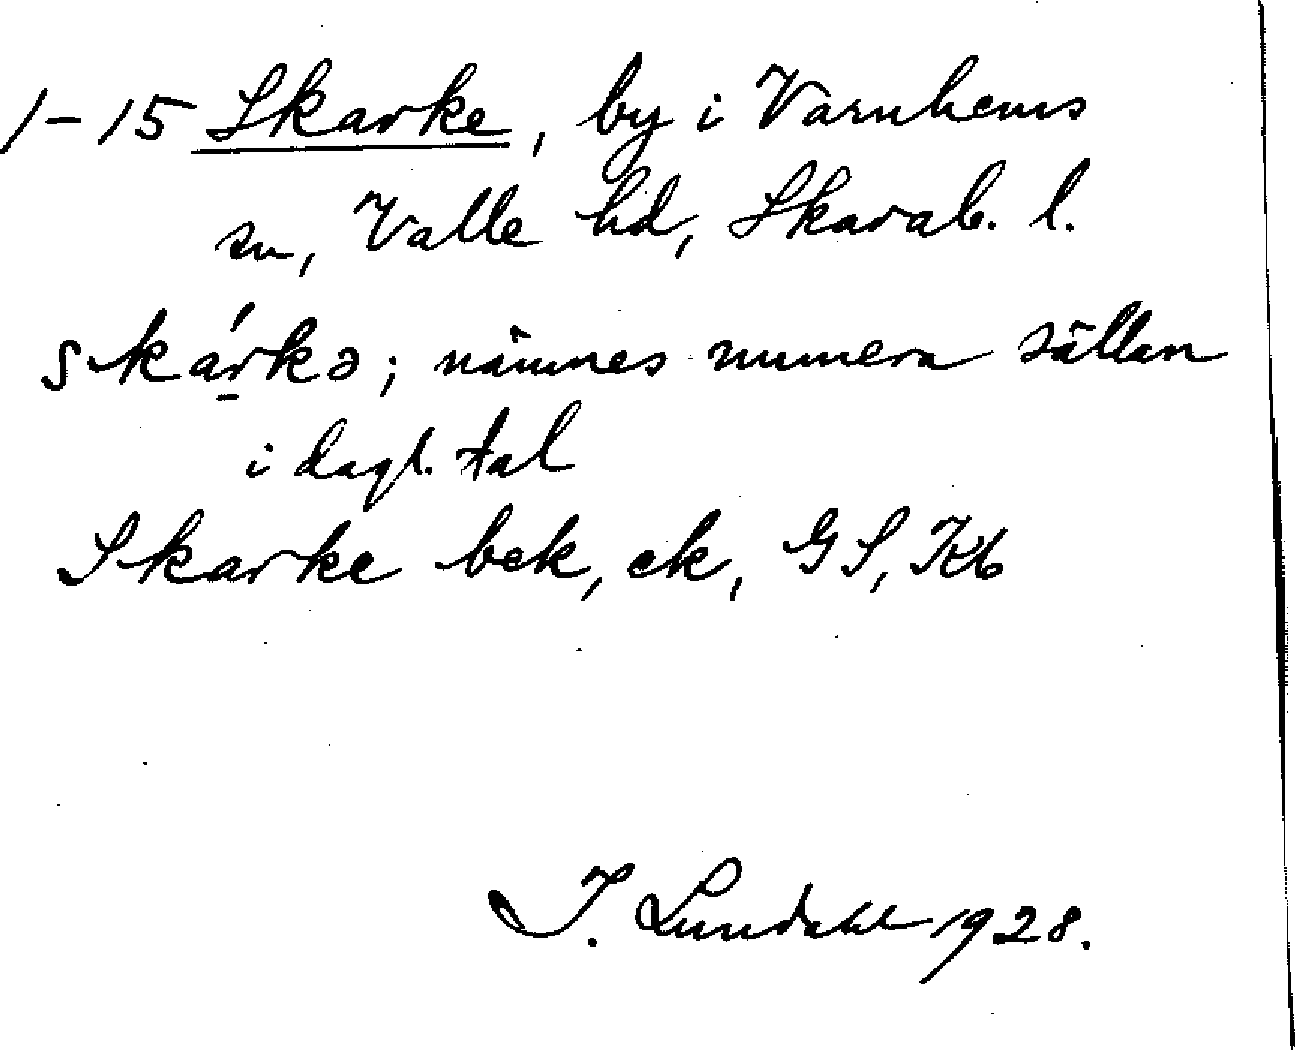 1-15 Skarke, by i Varnhems
sn, Valle hd, Skarab. l.
skárkə; nämnes numera sällan
i dagl. tal
Skarke bek, ek, GS, Kb
I. Lundahl 1928.